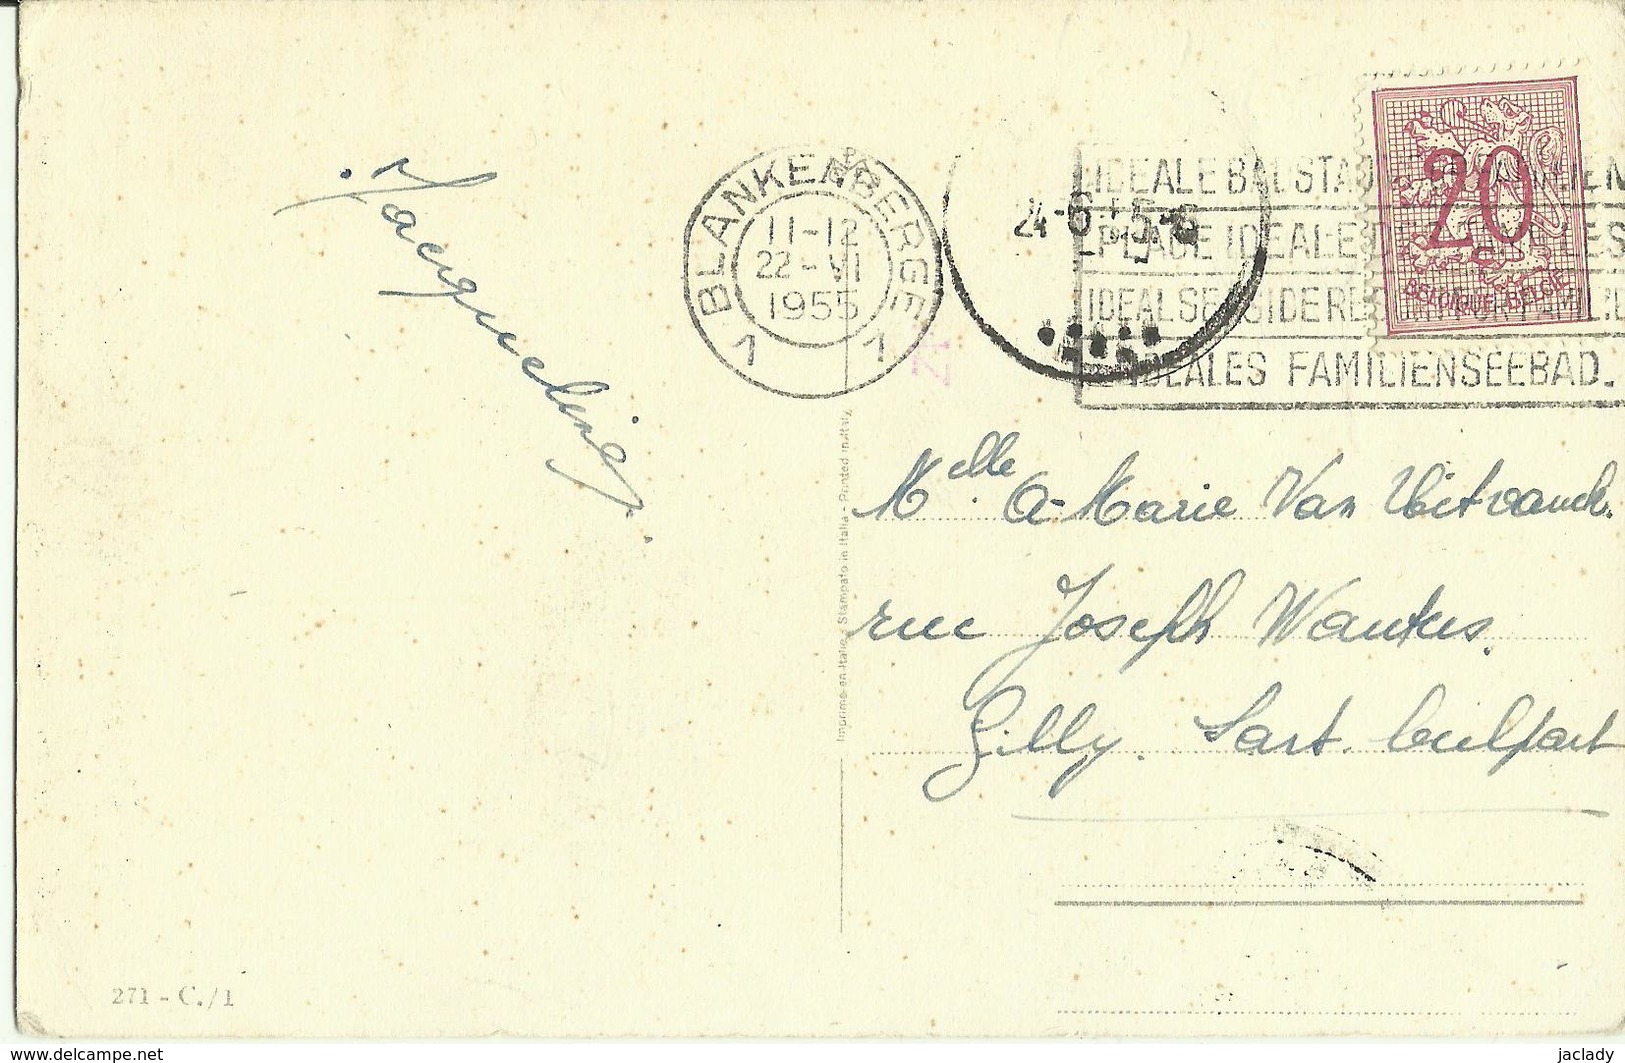 Jacqueline.
BLANKENBERGE
11-12
22-VI
1955
1 1
24-6
IDEALE
PLAGE IDEALE
IDEAL SEASIDE
IDEALES FAMILIENSEEBAD.
20
BELGIQUE-BELGIE
Melle A-Marie Van
rue Joseph Wauters.
Gilly. Sart
Imprimé en Italie - Stampato in Italia - Printed in Italy
271 - C./1
www.delcampe.net
jaclady